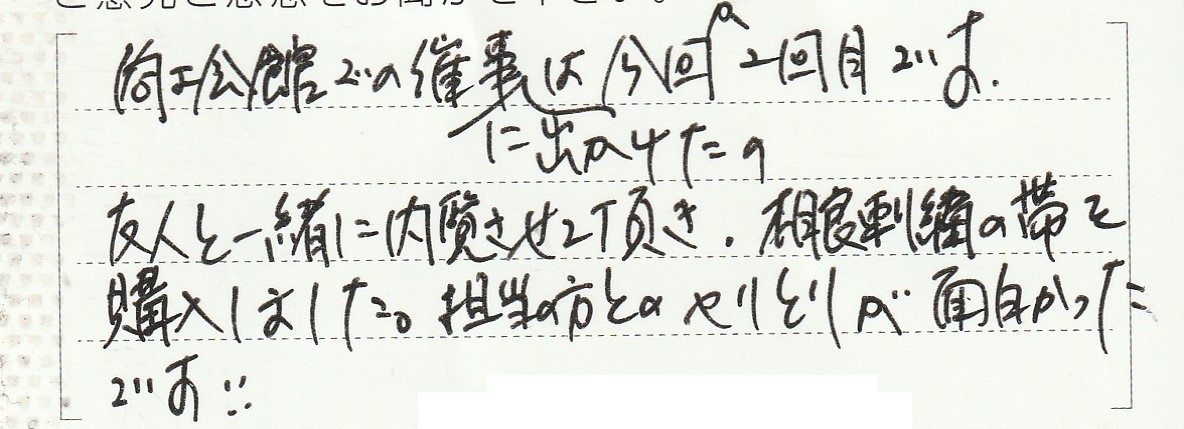 ご意見ご感想をお聞かせ下さい。
商工公館での催事は今回が2回目です.
に出かけたの
友人と一緒に内覧させて頂き、相良刺繍の帯を
購入しました。担当の方とのやりとりが面白かった
です∵